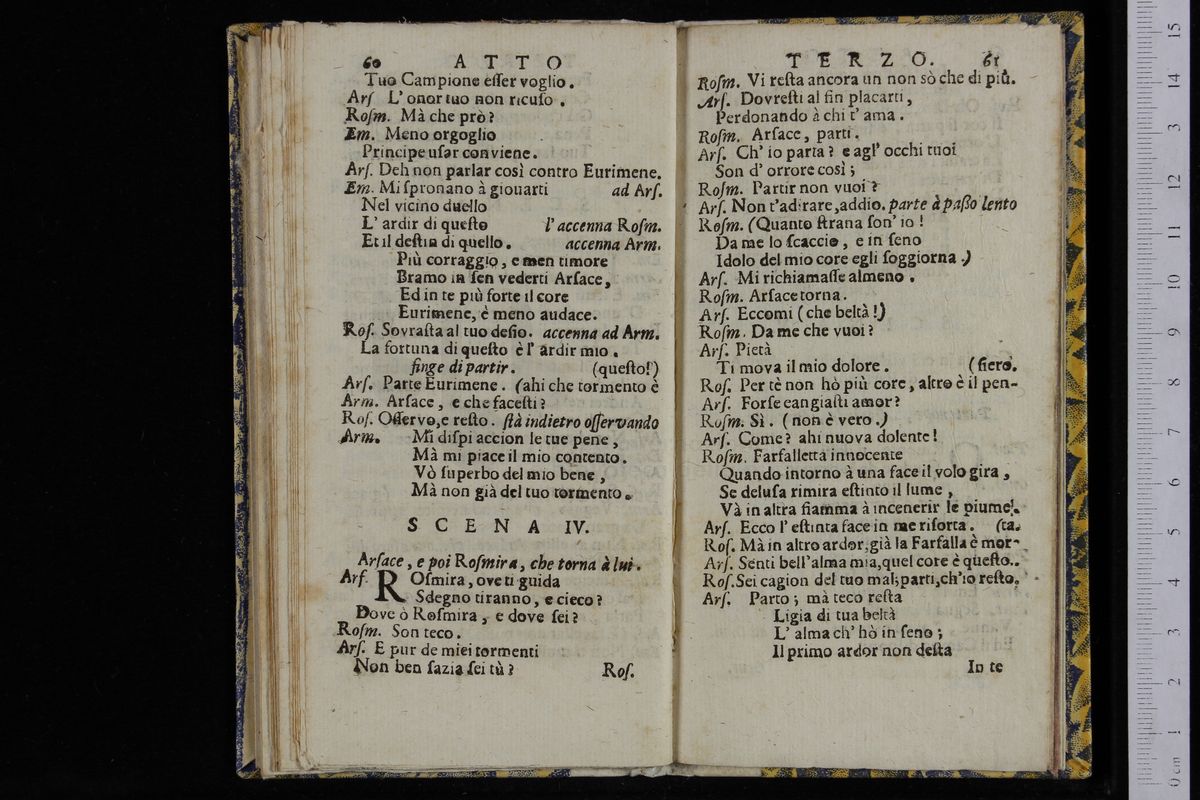 60 ATTO
Tuo Campione eſſer voglio.
Arſ L' onor tuo non ricuſo.
Roſm. Mà che prò?
Em. Meno orgoglio
Principe uſar conviene.
Arſ. Deh non parlar così contro Eurimene.
Em. Mi ſpronano à giovarti ad Arſ.
Nel vicino duello
L' ardir di queſto l'accenna Roſm.
Et il deſtin di quello. accenna Arm.
Più corraggio, e men timore
Bramo in ſen vederti Arſace,
Ed in te più forte il core
Eurimene, è meno audace.
Roſ. Sovraſta al tuo deſio. accenna ad Arm.
La fortuna di queſto è l' ardir mio.
finge di partir. (queſto!)
Arſ. Parte Eurimene. (ahi che tormento è
Arm. Arſace, e che faceſti?
Roſ. Oſſervo,e reſto. ſtà indietro oſſervando
Arm. Mi diſpiaccion le tue pene,
Mà mi piace il mio contento.
Vò ſuperbo del mio bene,
Mà non già del tuo tormento.
SCENA IV.
Arſace, e poi Roſmira, che torna à lui.
Arſ. ROſmira, ove ti guida
Sdegno tiranno, e cieco?
Dove ò Roſmira, e dove ſei?
Roſm. Son teco.
Arſ. E pur de miei tormenti
Non ben ſazia ſei tù?
Roſ.
TERZO. 61
Roſm. Vi reſta ancora un non sò che di più.
Arſ. Dovreſti al fin placarti,
Perdonando à chi t' ama.
Roſm. Arſace, parti.
Arſ. Ch' io parta? e agl' occhi tuoi
Son d' orrore così;
Roſm. Partir non vuoi?
Arſ. Non t'adirare,addio. parte à paſſo lento
Roſm. (Quanto ſtrana ſon' io!
Da me lo ſcaccio, e in ſeno
Idolo del mio core egli ſoggiorna.)
Arſ. Mi richiamaſſe almeno.
Roſm. Arſace torna.
Arſ. Eccomi (che beltà!)
Roſm. Da me che vuoi?
Arſ. Pietà
Ti mova il mio dolore. (fiero.
Roſ. Per tè non hò più core, altro è il pen-
Arſ. Forſe cangiaſti amor?
Roſm. Sì. (non è vero.)
Arſ. Come? ahi nuova dolente!
Roſm. Farfalletta innocente
Quando intorno à una face il volo gira,
Se deluſa rimira eſtinto il lume,
Và in altra fiamma à incenerir le piume.
Arſ. Ecco l' eſtinta face in me riſorta. (ta.
Roſ. Mà in altro ardor,già la Farfalla è mor-
Arſ. Senti bell'alma mia,quel core è queſto..
Roſ.Sei cagion del tuo mal;parti,ch'io reſto.
Arſ. Parto; mà teco reſta
Ligia di tua beltà
L' alma ch' hò in ſeno;
Il primo ardor non deſta
In te